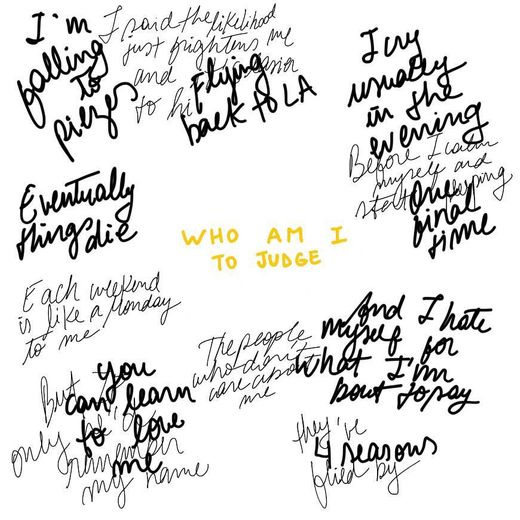 I'm
falling
to
piezes
I said the likelihod
just frightens me
and
to hi
Flying
back to LA
I cry
usually
in the
evening
Before I calm
myself and
start
One
final
time
Eventually
things die
WHO AM I
TO JUDGE
Each weekend
is like a Monday
to me
The people
who don't
care about
me
And I hate
myself for
what I'm
bout to pay
But
only
remember
my name
You
can learn
to love
me
they've
4 seasons
flied by